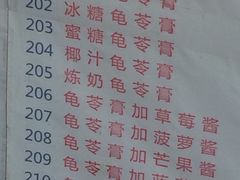 202 冰糖龟苓膏
203 蜜糖龟苓膏
204 椰汁龟苓膏
205 炼奶龟苓膏
206 龟苓膏加草莓酱
207 龟苓膏加菠萝酱
208 龟苓膏加芒果酱
209 龟苓膏加
210